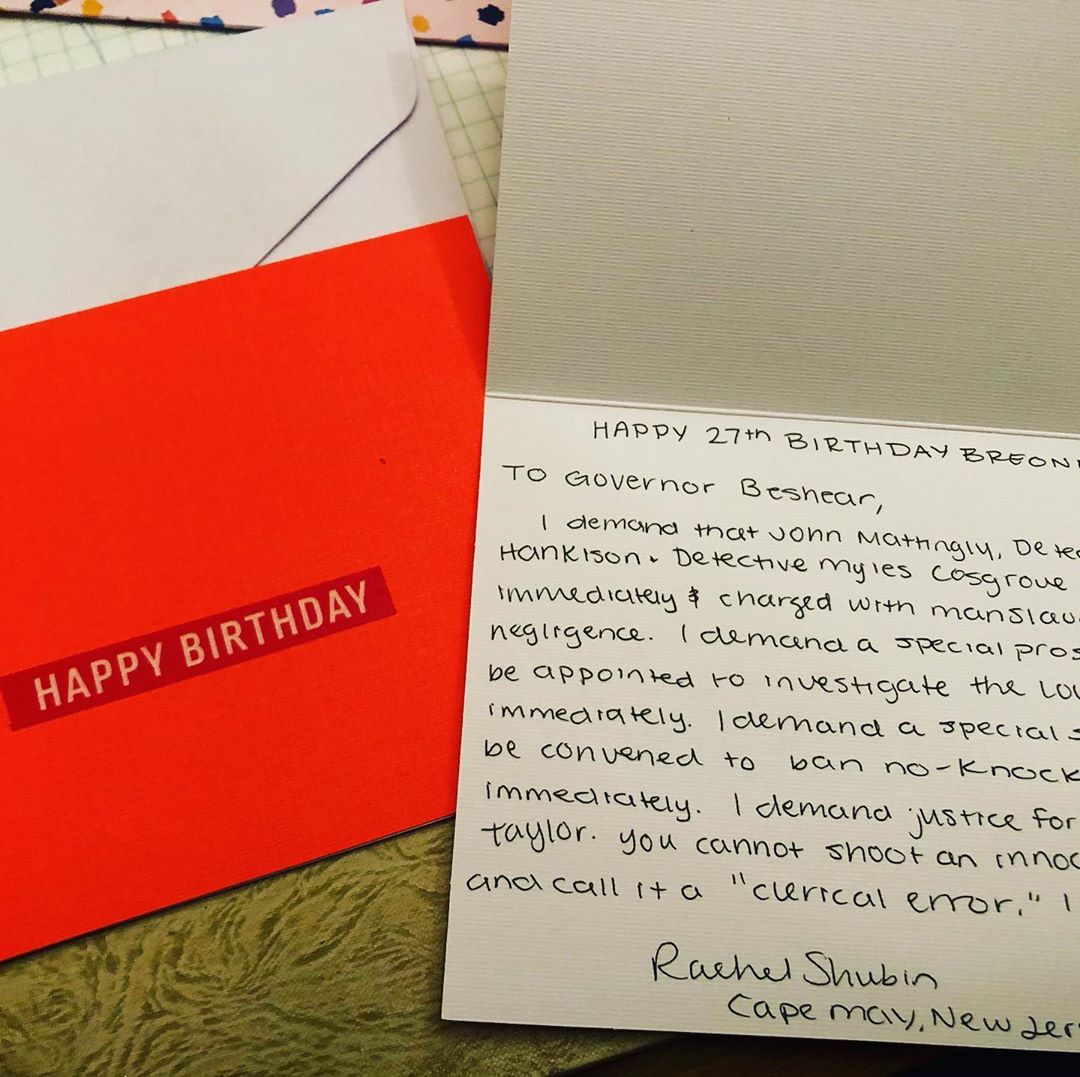 HAPPY BIRTHDAY
HAPPY 27th BIRTHDAY
TO Governor Beshear,
I demand that John Mattingly,
Hankison & Detective Myles Cosgrove
immediately & charged with
negligence. I demand a special
be appointed to investigate the
immediately. I demand a special
be convened to ban no-knock
immediately. I demand justice for
Taylor. you cannot shoot an
and call it a "clerical error." I
Rachel Shubin
Cape May, New